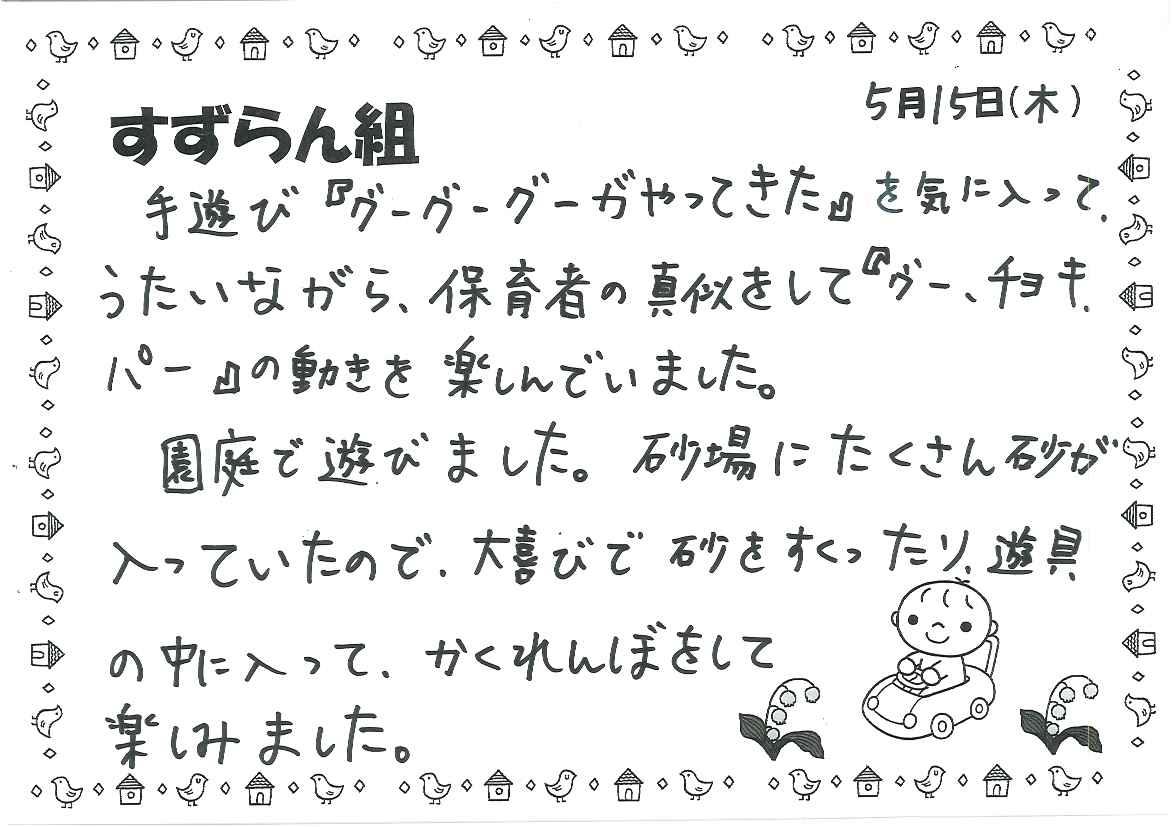 5月15日(木)
すずらん組
手遊び『グーグーグーがやってきた』を気に入って、
うたいながら、保育者の真似をして『グー、チョキ、
パー』の動きを楽しんでいました。
園庭で遊びました。砂場にたくさん砂が
入っていたので、大喜びで砂をすくったり、遊具
の中に入って、かくれんぼをして
楽しみました。